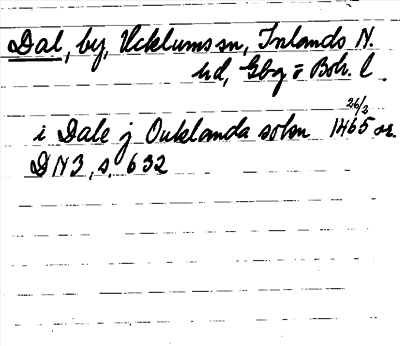 Dal, by, Ucklums sn, Inlands N.
hd, Gbg o Boh. l.
i Dale j Ouklanda sokn 1465 26/3 or.
DN3, s. 632